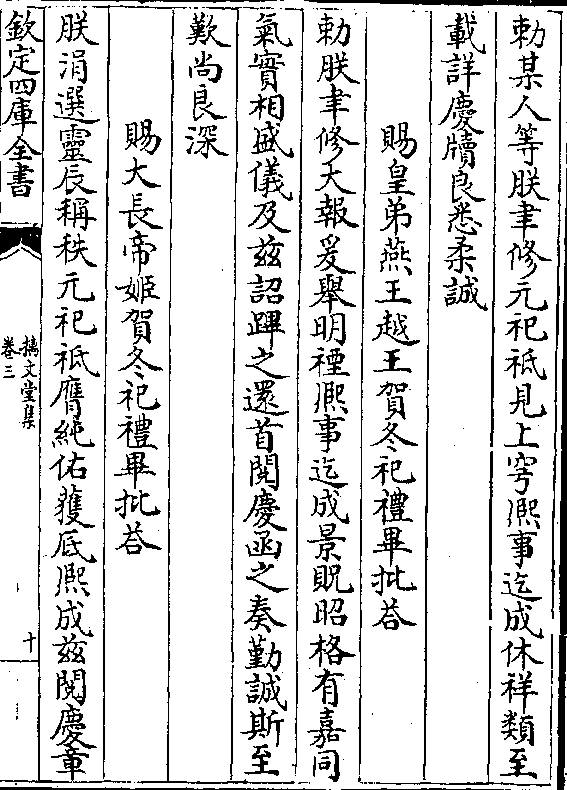 勅某人等朕聿修元祀祗見上穹熈事迄成休祥類至
載詳慶牘良悉柔誠
賜皇弟燕王越王賀冬祀禮畢批荅
勅朕聿修大報爰舉明禋熈事迄成景貺昭格有嘉同
氣實相盛儀及兹詔蹕之還首閱慶函之奏勤誠斯至
歎尚良深
賜大長帝姬賀冬祀禮畢批荅
朕涓選靈辰稱秩元祀祗膺純佑獲厎熈成兹閱慶章
欽定四庫全書
摛文堂集
卷三
十